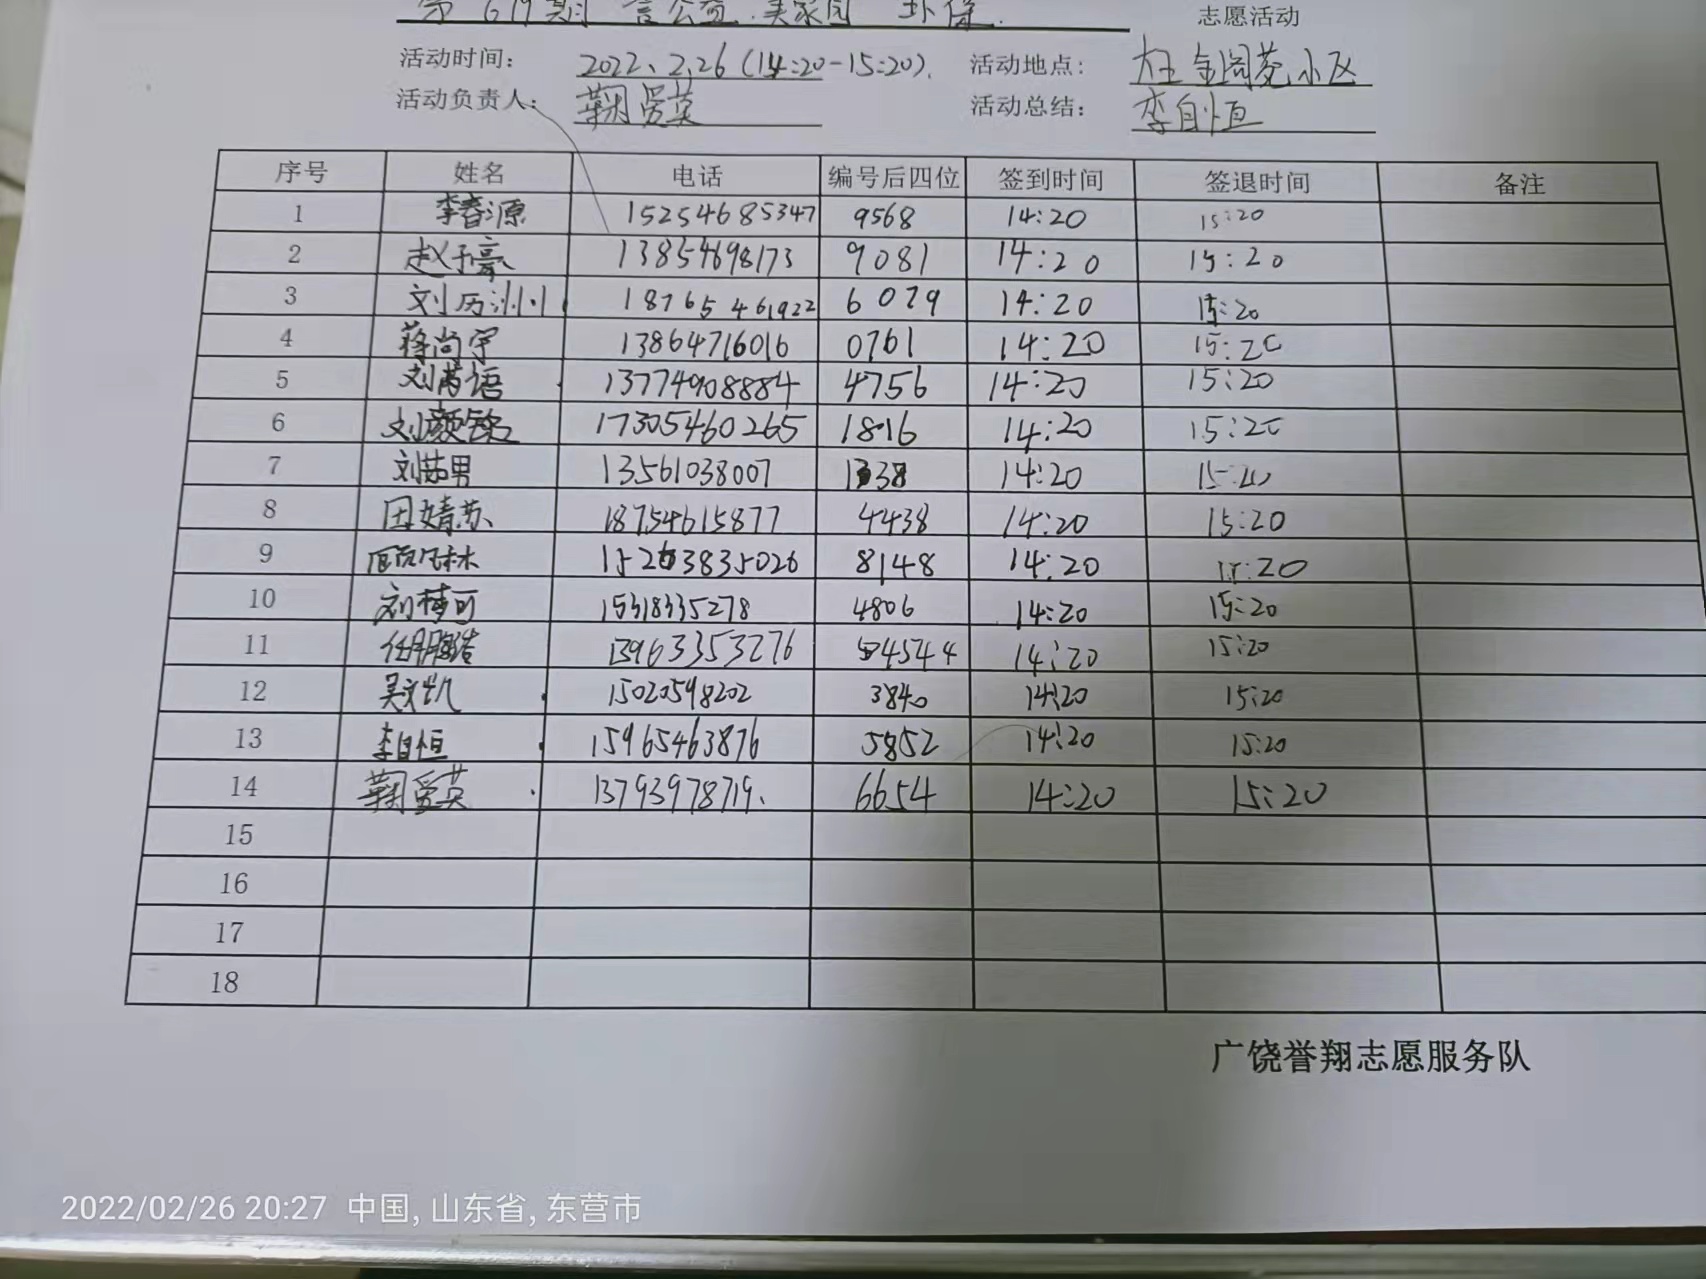 第619期 公益 美家园 环保 志愿活动
活动时间: 2022.2.26 (14:20-15:20). 活动地点: 大王金阁苑小区
活动负责人: 鞠爱英 活动总结: 李自恒
序号 姓名 电话 编号后四位 签到时间 签退时间 备注
1 李春源 15254685347 9568 14:20 15:20
2 赵子豪 13854698173 9081 14:20 15:20
3 刘历洲 18765461922 6079 14:20 15:20
4 蒋尚宇 13864716016 0761 14:20 15:20
5 刘芮语 13774908884 4756 14:20 15:20
6 刘颜铭 17305460265 1816 14:20 15:20
7 刘茹男 13561038007 1338 14:20 15:20
8 田婧苏 18754615877 4438 14:20 15:20
9 15263835026 8148 14:20 15:20
10 刘梼可 15318335278 4806 14:20 15:20
11 任鹏浩 13963353276 4544 14:20 15:20
12 吴文凯 15020598202 3840 14:20 15:20
13 李自恒 15965463876 5852 14:20 15:20
14 鞠爱英 13793978719. 6654 14:20 15:20
15
16
17
18
广饶誉翔志愿服务队
2022/02/26 20:27 中国, 山东省, 东营市